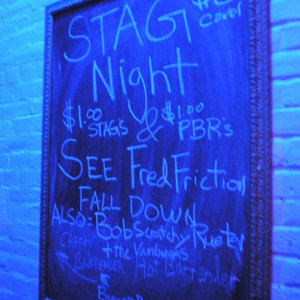 STAG
Cover
Night
$1.00 $1.00
STAGS & PBR's
SEE Fred Friction
FALL DOWN
ALSO= Bob Scratchy Rueter
+ the Vamburgers
CREEPY
BARTENDER Hot Bartender